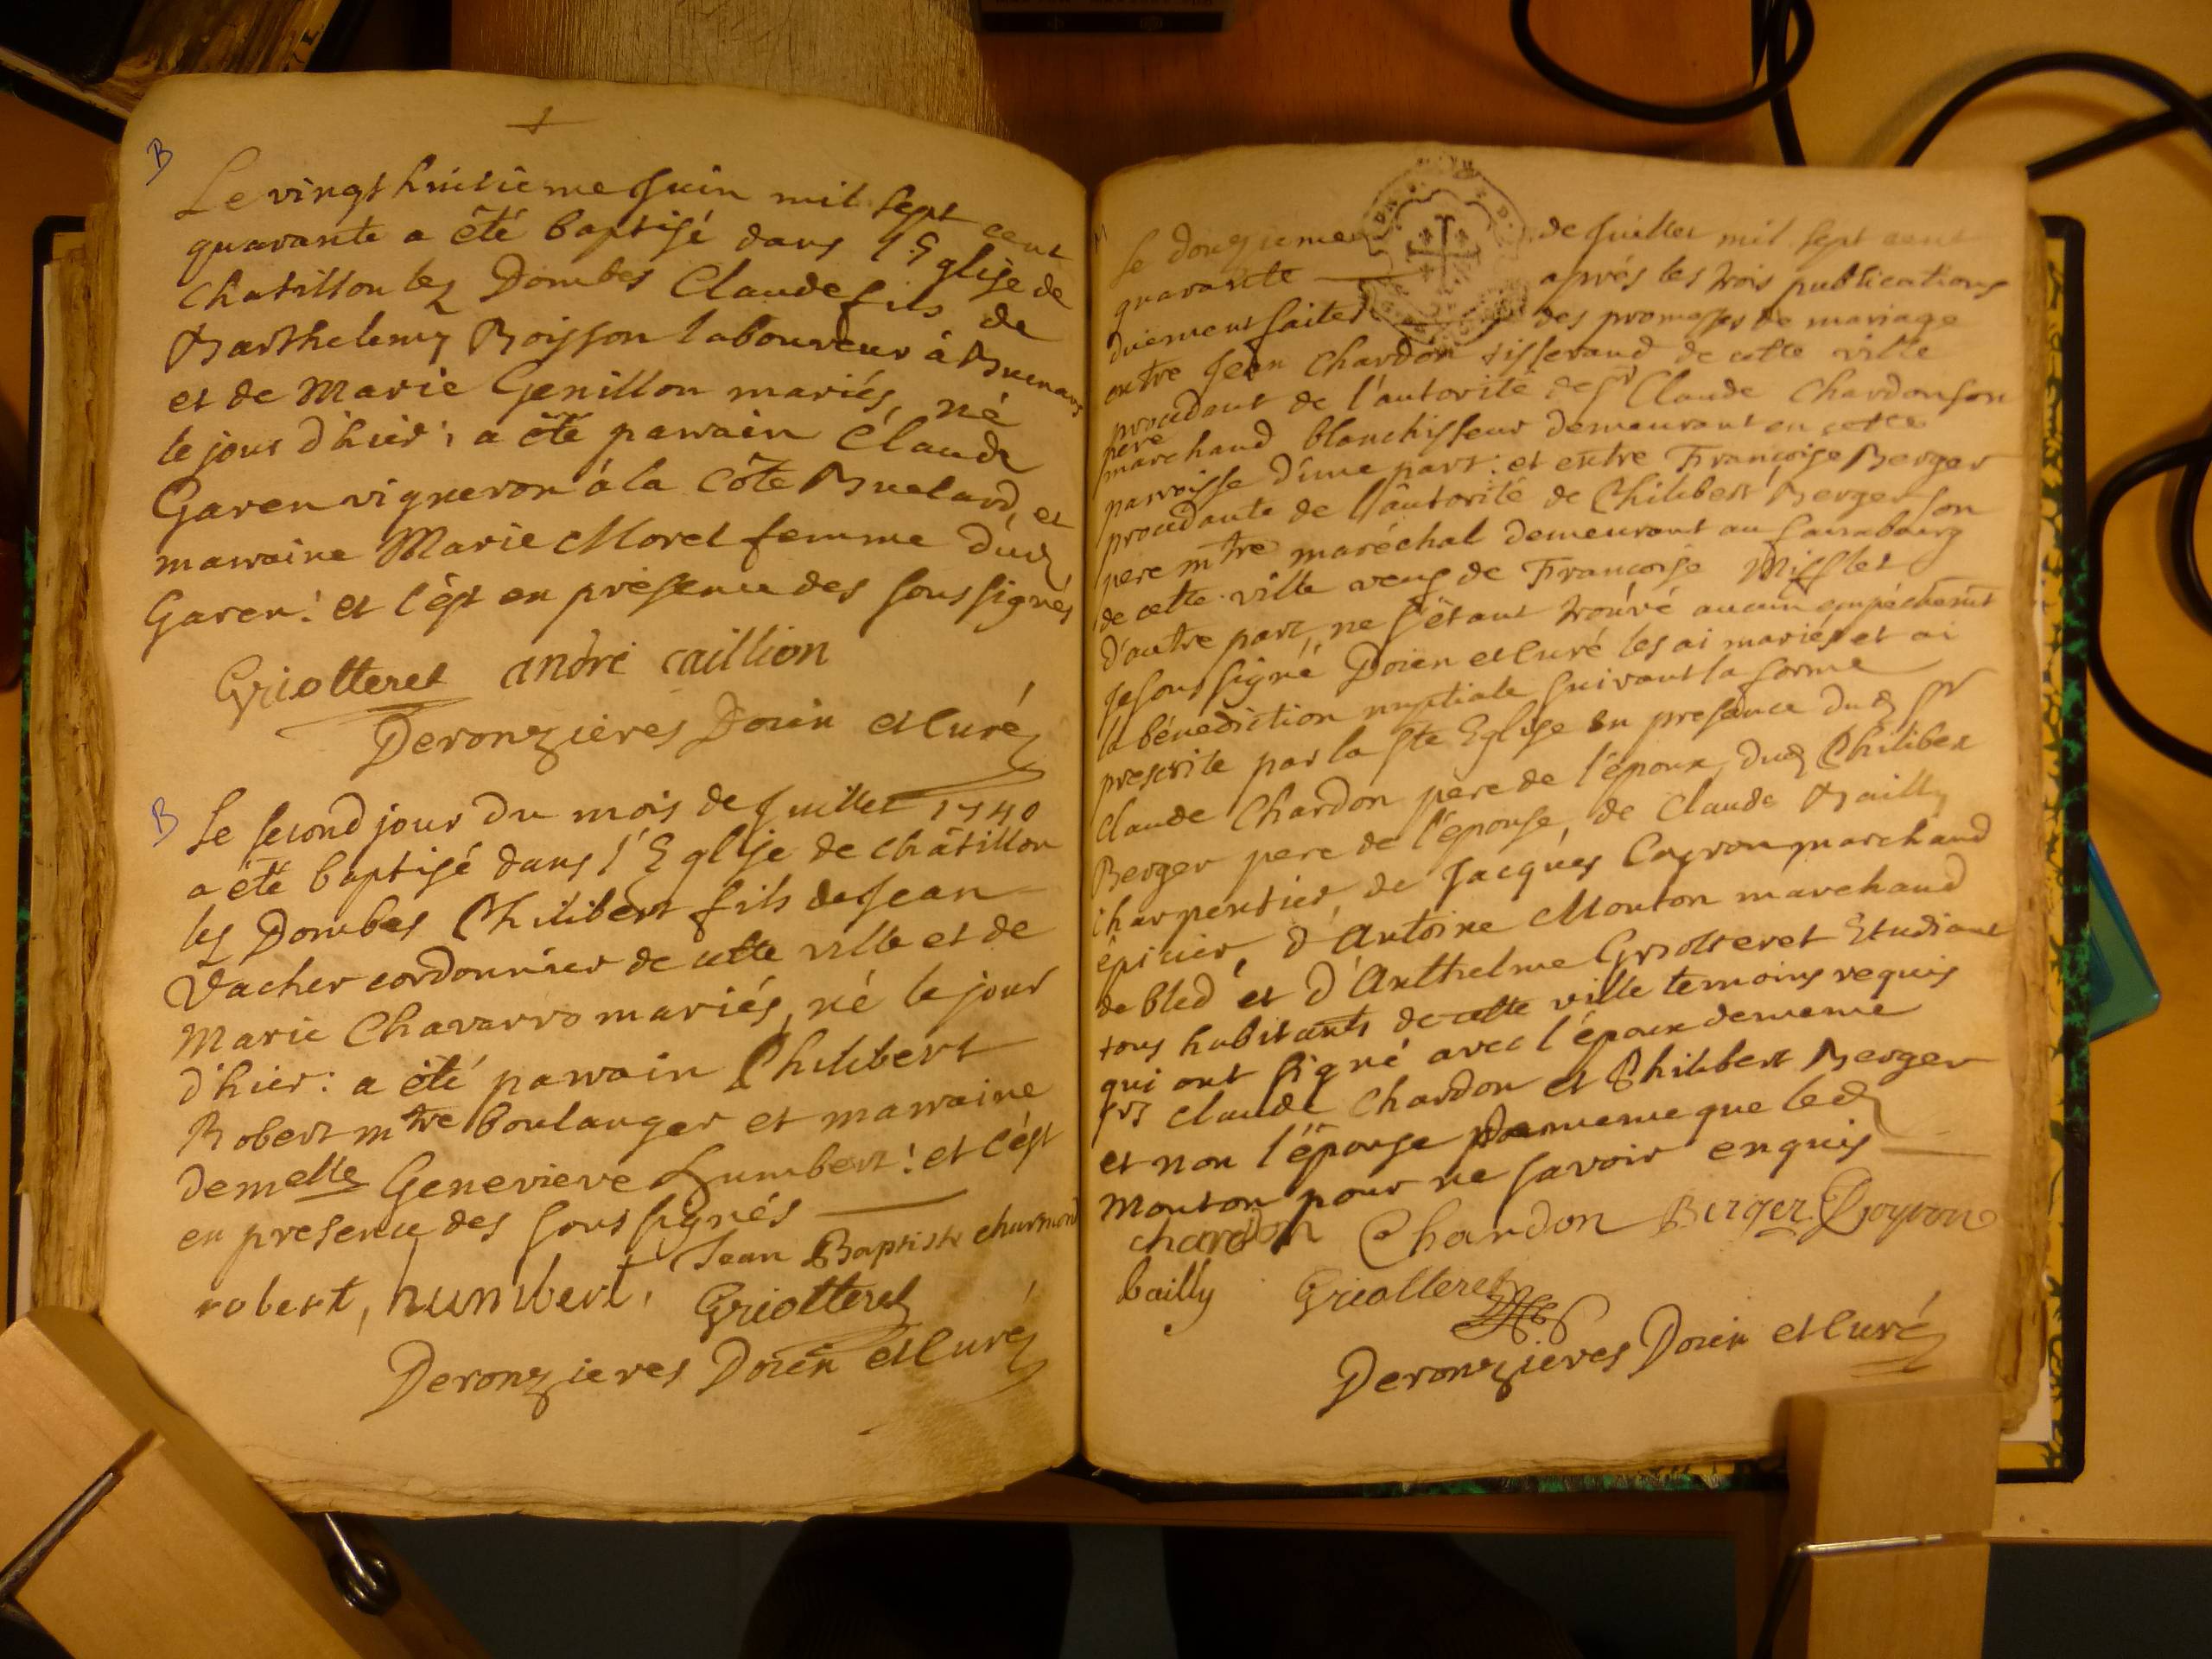 B
Le vingt huitieme Juin mil sept cent
quarante a été baptisé dans l'Eglise de
chatillon lez Dombes Claude fils de
Barthelemy Boisson laboureur à Buenans
et de Marie Genillon mariés, né
le jour d'hier; a été parrain Claude
Garen vigneron à la Côte Buelard, et
marraine Marie Morel femme dud
Garen: et c'est en présence des soussignés
Griotteret andré caillion
Deronzieres Doien et Curé
B
Le second jour du mois de Juillet 1740
a été baptisé dans l'Eglise de châtillon
lez Dombes Philibert fils de Jean
Vacher cordonnier de cette ville et de
Marie Chavarro mariés, né le jour
d'hier: a été parrain Philibert
Robert mtre boulanger et marraine
demelle Genevieve Humbert: et c'est
en presence des soussignés
Jean Baptiste
robert, humbert, Griotteret
Deronzieres Doien et Curé
M
Le douzieme de Juillet mil sept cent
quarante après les trois publications
duement faites des promesses de mariage
entre Jean Chardon tisserand de cette ville
procedant de l'autorité de sr Claude Chardon son
pere
marchand blanchisseur demeurant en cette
parroisse d'une part: et entre Françoise Berger
procedante de l'autorité de Philibert Berger son
pere mtre maréchal demeurant au fauxbourg
de cette ville veuf de Francoise Mifflet
d'autre part, ne s'étant trouvé aucun empéchemt
Je soussigné Doien et Curé les ai mariés et ai
la bénédiction nuptiale suivant la forme
prescrite par la Ste Eglise en presence dud sr
Claude Chardon pere de l'époux, dud Philibert
Berger pere de l'épouse, de Claude Bailly
charpentier, de Jacques Coyron marchand
épicier, d'Antoine Mouton marchand
de bled et d'Anthelme Griotteret Etudiant
tous habitants de cette ville temoins requis
qui ont signé avec l'époux de meme
srs Claude Chardon et Philibert Berger
et non l'épouse de meme que led
Mouton pour ne savoir enquis
chardon Chardon Berger Coyron
bailly Griotteret
Deronzieres Doien et Curé